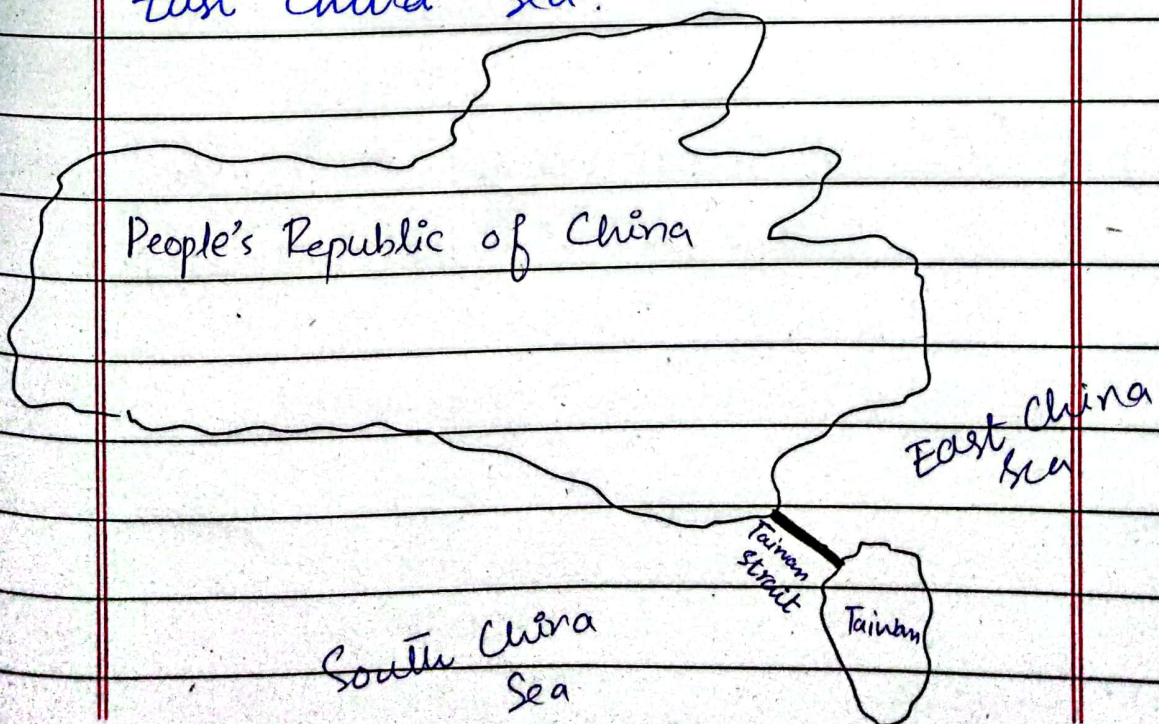 East China Sea.
People's Republic of China
East China
Sea
Taiwan
Strait
Taiwan
South China
Sea